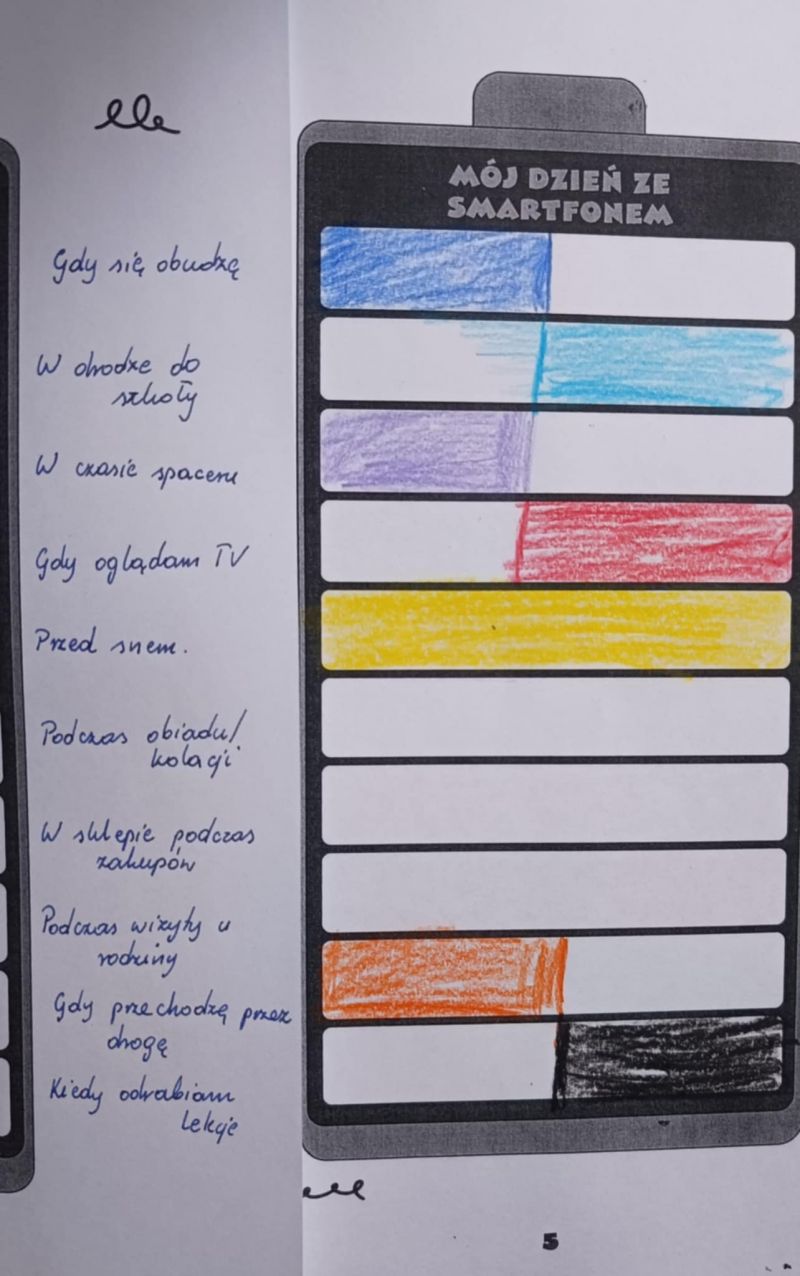 MÓJ DZIEŃ ZE
SMARTFONEM
Gdy się obudzę
W drodze do
szkoły
W czasie spaceru
Gdy oglądam TV
Przed snem.
Podczas obiadu/
kolacji
W sklepie podczas
zakupów
Podczas wizyty u
rodziny
Gdy przechodzę przez
drogę
Kiedy odrabiam
lekcje
5